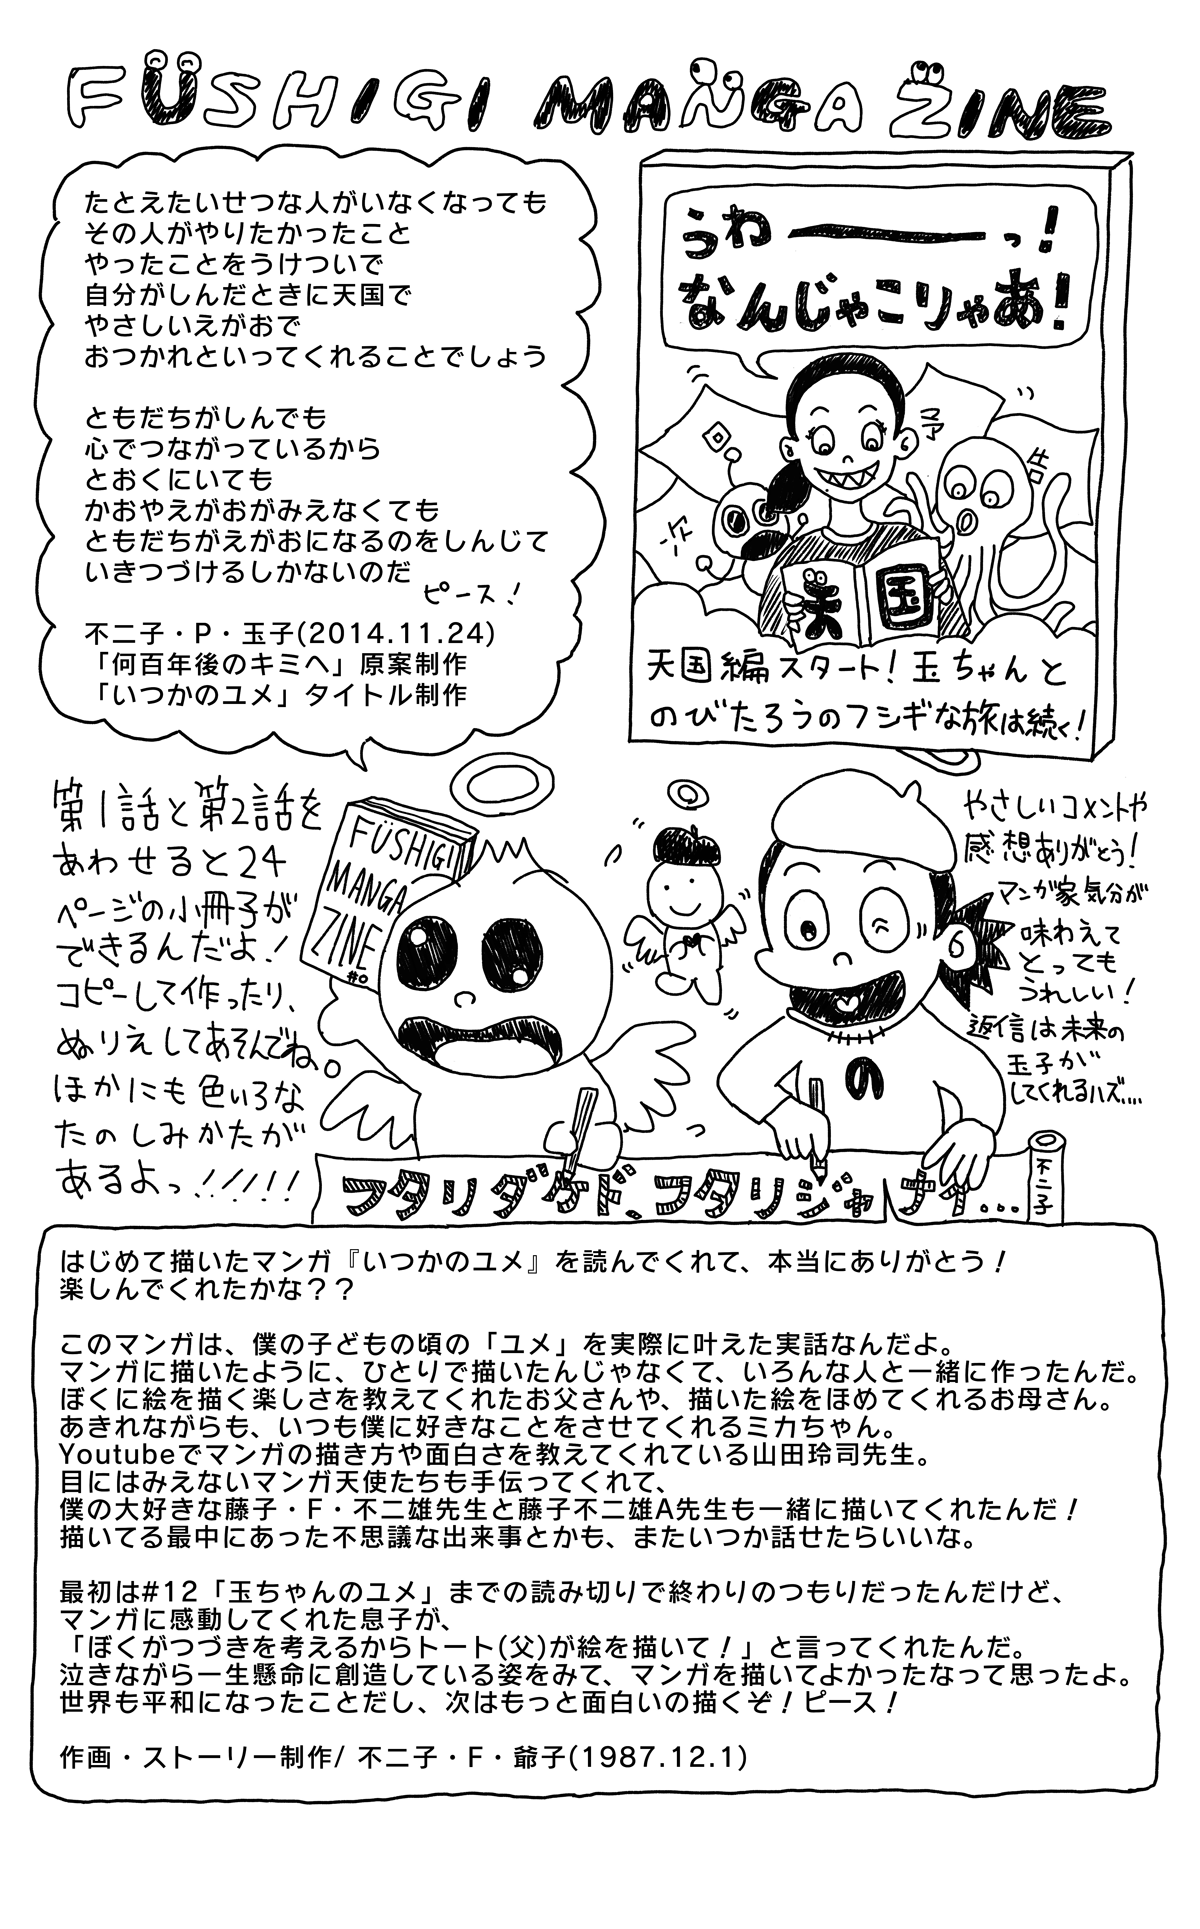 FÜSHIGI MANGA ZINE
たとえたいせつな人がいなくなっても
その人がやりたかったこと
やったことをうけついで
自分がしんだときに天国で
やさしいえがおで
おつかれといってくれることでしょう
ともだちがしんでも
心でつながっているから
とおくにいても
かおやえがおがみえなくても
ともだちがえがおになるのをしんじて
いきつづけるしかないのだ
ピース!
不二子・P・玉子(2014.11.24)
「何百年後のキミへ」原案制作
「いつかのユメ」タイトル制作
うわーーっ!
なんじゃこりゃあ!
次
回
予
告
天国
天国編スタート!玉ちゃんと
のびたろうのフシギな旅は続く!
第1話と第2話を
あわせると24
ページの小冊子が
できるんだよ!
コピーして作ったり、
ぬりえしてあそんでね。
ほかにも色いろな
たのしみかたが
あるよっ!!!!!!
FÜSHIGI
MANGA
ZINE
#0
M
の
やさしいコメントや
感想ありがとう!
マンガ家気分が
味わえて
とっても
うれしい!
返信は未来の
玉子が
してくれるハズ....
フタリダケド、フタリジャナイ...
不二子
はじめて描いたマンガ『いつかのユメ』を読んでくれて、本当にありがとう!
楽しんでくれたかな??
このマンガは、僕の子どもの頃の「ユメ」を実際に叶えた実話なんだよ。
マンガに描いたように、ひとりで描いたんじゃなくて、いろんな人と一緒に作ったんだ。
ぼくに絵を描く楽しさを教えてくれたお父さんや、描いた絵をほめてくれるお母さん。
あきれながらも、いつも僕に好きなことをさせてくれるミカちゃん。
Youtubeでマンガの描き方や面白さを教えてくれている山田玲司先生。
目にはみえないマンガ天使たちも手伝ってくれて、
僕の大好きな藤子・F・不二雄先生と藤子不二雄A先生も一緒に描いてくれたんだ!
描いてる最中にあった不思議な出来事とかも、またいつか話せたらいいな。
最初は#12「玉ちゃんのユメ」までの読み切りで終わりのつもりだったんだけど、
マンガに感動してくれた息子が、
「ぼくがつづきを考えるからトート(父)が絵を描いて!」と言ってくれたんだ。
泣きながら一生懸命に創造している姿をみて、マンガを描いてよかったなって思ったよ。
世界も平和になったことだし、次はもっと面白いの描くぞ!ピース!
作画・ストーリー制作/ 不二子・F・爺子(1987.12.1)